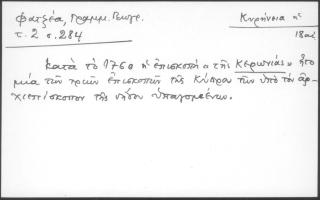 Φατζέα, Γραμμ. Γεωγρ.
τ. 2 σ. 284
Κυρήνεια ἡ
18 αἰ.
Κατὰ τὸ 1760 ἡ ἐπισκοπή «τῆς Κερωνιάς» ἦτο
μία τῶν τριῶν ἐπισκοπῶν τῆς Κύπρου τῶν ὑπὸ τὸν ἀρ-
χιεπίσκοπον τῆς νήσου ὑπαγομένων.